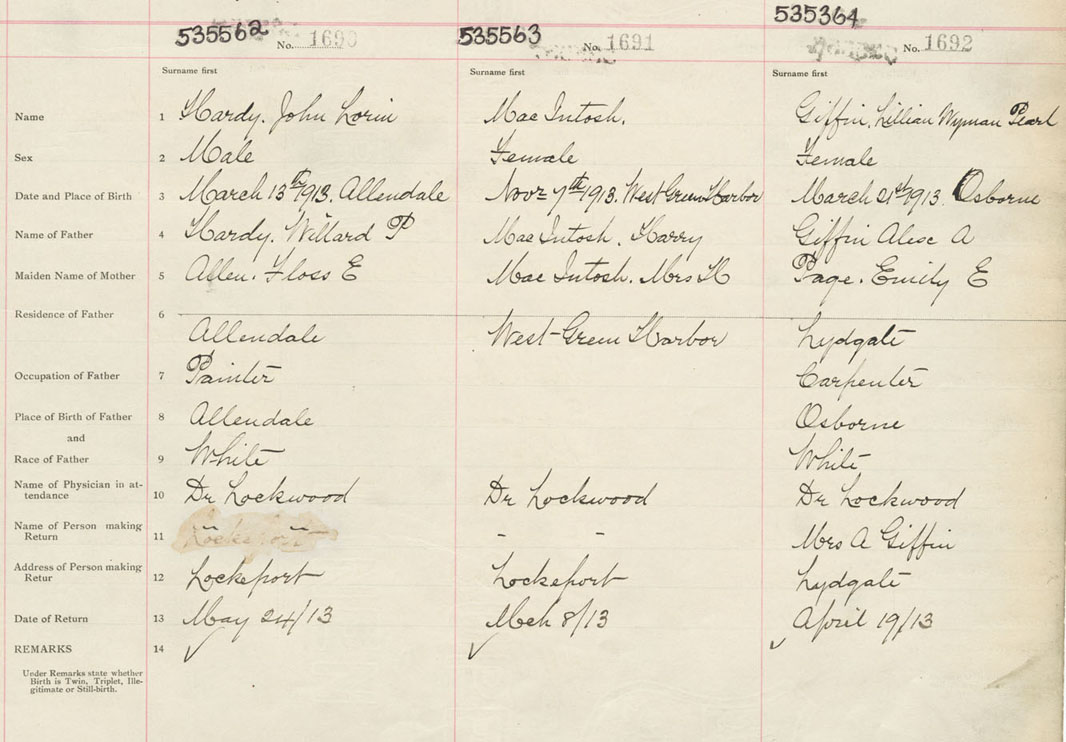 535562 No. 1690
535563 No. 1691
535364 No. 1692
Surname first Surname first Surname first
Name 1 Hardy. John Lorin Mac Intosh. Giffin. Lillian Wyman Pearl
Sex 2 Male Female Female
Date and Place of Birth 3 March 13th 1913. Allendale Novr 7th 1913. West Green Harbor March 21st 1913. Osborne
Name of Father 4 Hardy. Willard P Mac Intosh. Harry Giffin Alexc A
Maiden Name of Mother 5 Allen. Floss E Mac Intosh. Mrs H Page. Emily E
Residence of Father 6
Allendale West-Green Harbor Lydgate
Occupation of Father 7 Painter Carpenter
Place of Birth of Father 8 Allendale Osborne
and
Race of Father 9 White White
Name of Physician in at-
tendance 10 Dr Lockwood Dr Lockwood Dr Lockwood
Name of Person making
Return 11 " " - - Mrs A Giffin
Address of Person making
Retur 12 Lockeport Lockeport Lydgate
Date of Return 13 May 24/13 Mch 8/13 April 19/13
REMARKS 14 ✓ ✓ ✓
Under Remarks state whether
Birth is Twin, Triplet, Ille-
gitimate or Still-birth.